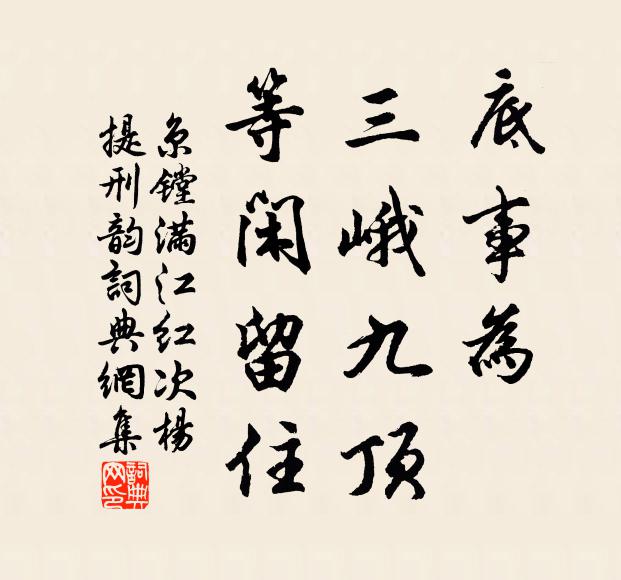 底事為
三峨九頂
等閑留住
京鏜滿江红次楊
提刑韵詞典網集
詞典
网印